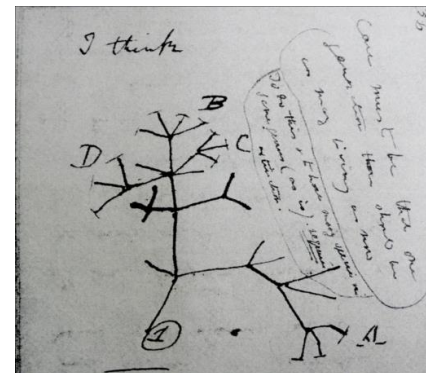 36
I think
Case must be that one
generation then should be
as many living as now
To do this & to have many species in
same genus (as is) requires
extinction.
B
C
D
A
1